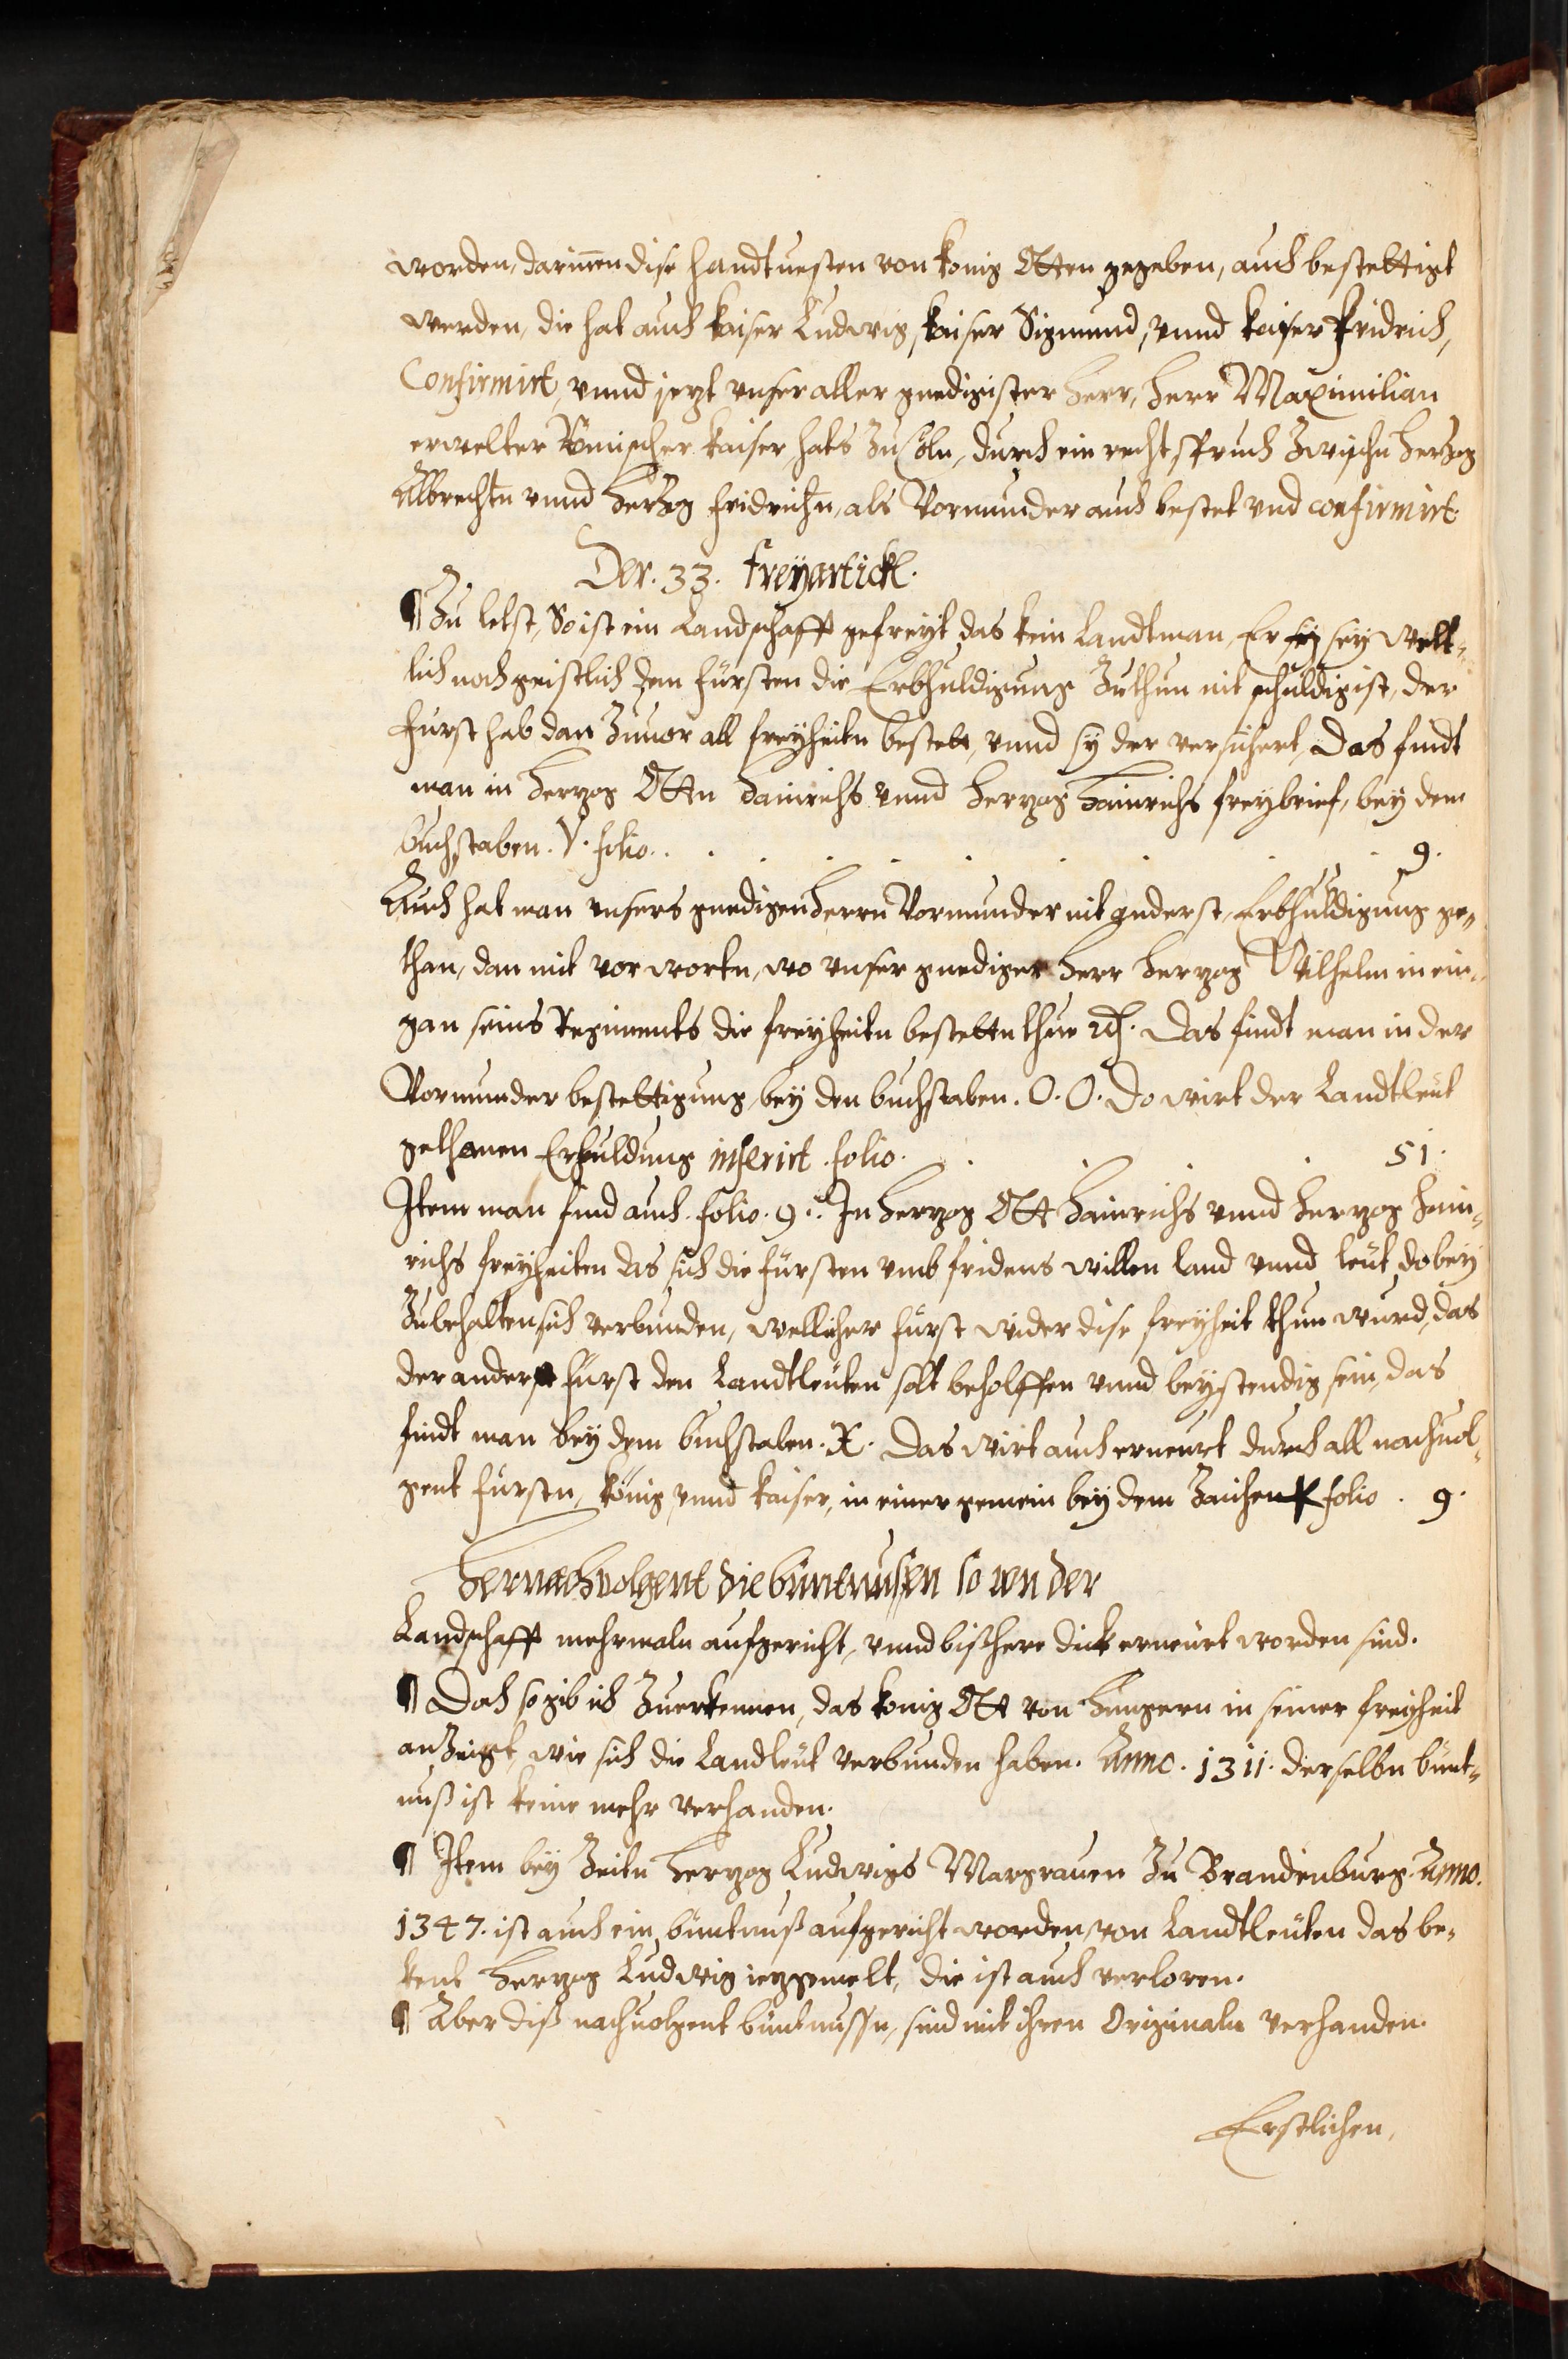 worden, darinnen dise handtuesten von konig Otten gegeben, auch bestettigt
werden, die hat auch kaiser Ludwig, kaiser Sigmund, vnnd kaiser fridrich,
Confirmirt, vnnd jezt vnser aller gnedigister herr, herr Maximilian
erwelter Römischer kaiser hats zu Cöln, durch ein rechtspruch zwischn herzog
Albrechtn vnnd herzog fridrichn, als Vormunder auch bestet vnd confirmirt.
Der. 33. freyartickl.
¶ Zu letst, So ist ein Landschafft gefreyt, das kein Landtman, Er sey welt¬
lich noch geistlich dem fürsten die Erbhuldigung zuthun nit schuldig ist, der
fürst hab dan zuuor all freyheitn bestett, vnnd sy der versichert, Das findt
man in herzog Ottn hainrichs vnnd herzog hainrichs freybrief, bey dem
buchstaben. V. folio. . . . . . . 9.
Auch hat man vnsers gnedigen herrn Vormunder nit anderst, Erbhuldigung ge¬
than, dan mit vorwortn, wo vnser gnediger herr herzog Wilhelm in ein¬
gan seins Regiments die freyheitn bestettn thue etc. Das findt man in der
Vormunder bestettigung, bey den buchstaben. O. O. Do wirt der Landtleut
gethanen Erhuldung inserirt. folio. . . . 51.
Item man find auch. folio. 9. In herzog Ott hainrichs vnnd herzog hein¬
richs freyheiten das sich die fürsten vmb fridens willen land vnnd leut, dobey
zubehalten sich verbunden, wellicher fürst wider dise freyheit thun wurd, das
der ander fürst den Landtleuten solt beholffen vnnd beystendig sein, das
findt man bey dem buchstaben. X. Das wirt auch erneurt durch all nachuol¬
gent fürstn, könig vnnd kaiser, in einer gemein bey dem zaichen folio. 9.
Hernachuolgent die büntnussen so von der
Landschafft mehrmaln aufgericht, vnnd bißhere dick erneurt worden sind.
¶ Doch so gib ich zuerkennen, das konig Ott von hungern in seiner freyheit
anzeigt, wie sich die Landleut verbunden haben. Anno. 1311. derselbn bünt¬
nuß ist keine mehr verhanden.
¶ Item bey zeitn herzog Ludwigs Margrauen zu Brandenburg. Anno.
1347. ist auch ein büntnuß aufgericht worden, von Landtleuten das be¬
kent herzog Ludwig iezgemelt, die ist auch verloren.
¶ Aber diß nachuolgent büntnussn, sind mit ihren Originaln verhanden.
Erstlichen,